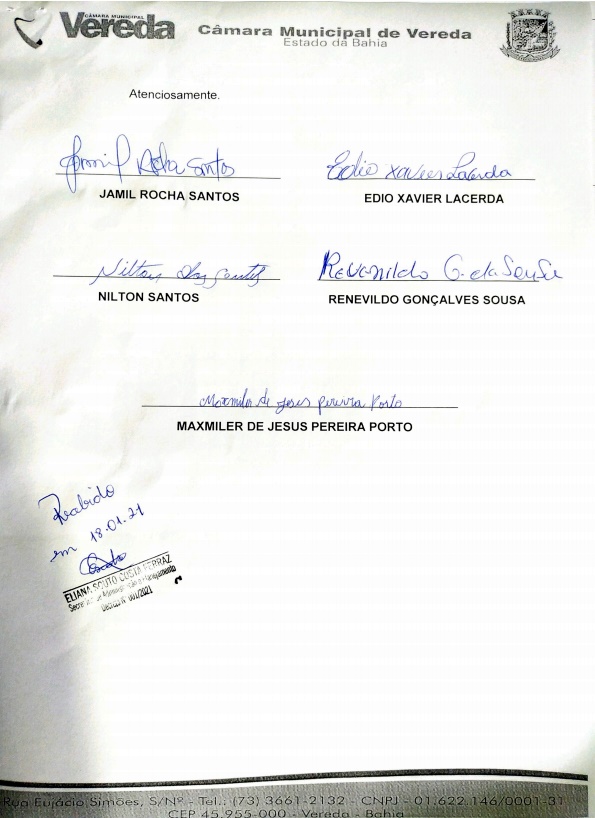 CÂMARA MUNICIPAL
Vereda
Câmara Municipal de Vereda
Estado da Bahia
Atenciosamente.
Jamil Rocha Santos
JAMIL ROCHA SANTOS
Edio Xavier Lacerda
EDIO XAVIER LACERDA
Nilton dos Santos
NILTON SANTOS
Revanildo G. da Sousa
RENEVILDO GONÇALVES SOUSA
Maxmiler de Jesus pereira Porto
MAXMILER DE JESUS PEREIRA PORTO
Recebido
em 18.01.21
ELIANA SOUTO COSTA FERRAZ
Secretária de Administração e Planejamento
Decreto Nº 001/2021
Rua Eufácio Simões, S/Nº - Tel.: (73) 3661-2132 - CNPJ - 01.622.146/0001-31
CEP 45.955-000 - Vereda - Bahia